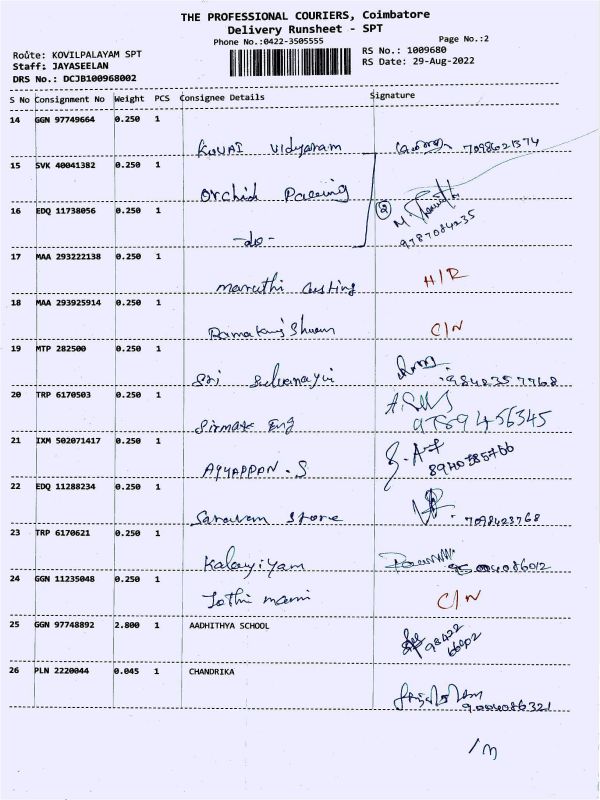 THE PROFESSIONAL COURIERS, Coimbatore
Delivery Runsheet - SPT
Phone No.:0422-3505555
Page No.:2
Route: KOVILPALAYAM SPT
RS No.: 1009680
Staff: JAYASEELAN
RS Date: 29-Aug-2022
DRS No.: DCJB100968002
S No Consignment No Weight PCS Consignee Details Signature
14 GGN 97749664 0.250 1
KOVAI Vidyaram
15 SVK 40041382 0.250 1
Orchid
16 EDQ 11738056 0.250 1
②
-do-
9787084235
17 MAA 293222138 0.250 1
maruthi casting H/R
18 MAA 293925914 0.250 1
C/N
19 MTP 282500 0.250 1
Sri
98423 57768
20 TRP 6170503 0.250 1
Sirmax Eng 97891456345
21 IXM 502071417 0.250 1
AYYAPPAN . S
22 EDQ 11288234 0.250 1
Saravan Store 7098423768
23 TRP 6170621 0.250 1
24 GGN 11235048 0.250 1
Jothi mani C/N
25 GGN 97748892 2.800 1 AADHITHYA SCHOOL
98422
26 PLN 2220044 0.045 1 CHANDRIKA
9004086321